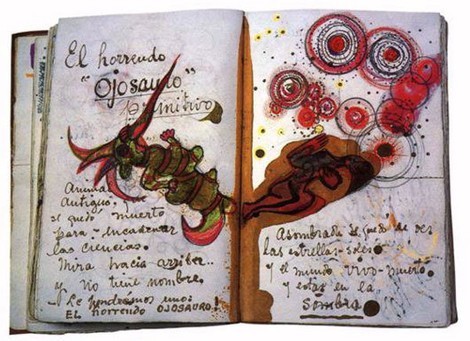 El horrendo
"OJOSAURO"
primitivo
Animal
Antiguo, que
se quedó muerto
para encadenar
las ciencias.
Mira hacia arriba...
y no tiene nombre.
- Le pondremos uno:
EL horrendo OJOSAURO!
Asombrada se quedó de ver
las estrellas-soles
y el mundo vivo-muerto
y estar en la
sombra